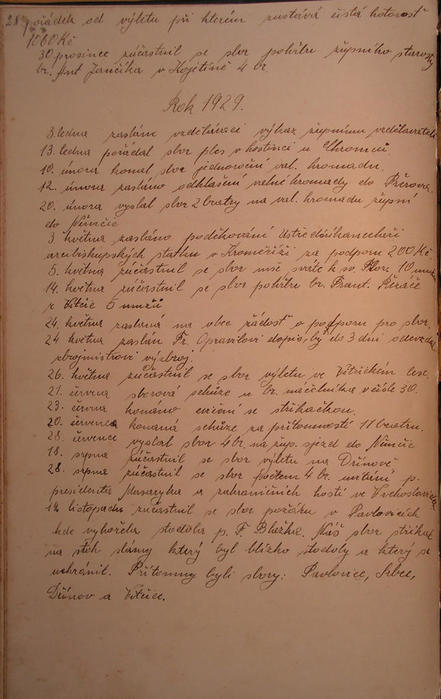 pořádek od výletu při kterém zůstává čistá hotovost
1060 Kč
30. prosince zúčastnil se sbor pohřbu župního starosty
br. Ant Jančíka v Kojetíně 4 br.
Rok 1929.
3. ledna zaslán vzdělávací výkaz župnímu vzdělavateli
13. ledna pořádal sbor ples v hostinci u
10. února konal sbor jednoroční val. hromadu.
12. února zasláno odhlášení valné hromady do Přerova.
20. února vyslal sbor 2 bratry na val. hromadu župní
do Němčic
3 května zasláno poděkování ústřední kanceláři
arcibiskupských statků v Kroměříži za podporu 200 Kč
5. května zúčastnil se sbor mše svaté k sv. Flor. 10 mužů
14. května zúčastnil se sbor pohřbu br. Frant.
z Vitčic 5 mužů
24. května zaslána na obec žádost o podporu pro sbor.
24 května zaslán Fr. Opravilovi dopis, by do 3 dní odevzdal
zbrojmistrovi výzbroj.
26. května zúčastnil se sbor výletu ve Vitčickém lese.
21. června sborová schůze u br. náčelníka v čísle 30.
23. června konáno cvičení se stříkačkou.
20. července konaná schůze za přítomnosti 11 bratrů.
28. července vyslal sbor 4 br. na žup. sjezd do Němčic
18. srpna zúčastnil se sbor výletu na Dřínově
28. srpna zúčastnil se sbor počtem 4 br. uvítání p.
presidenta Masaryka a zahraničních hostí ve
14. listopadu zúčastnil se sbor požáru v Pavlovicích
kde vyhořela stodola p. F. Blažka. Náš sbor stříkal
na stoh slámy který byl blízko stodoly a který se
uchránil. Přítomny byli sbory: Pavlovice, Srbce,
Dřínov a Vitčice.